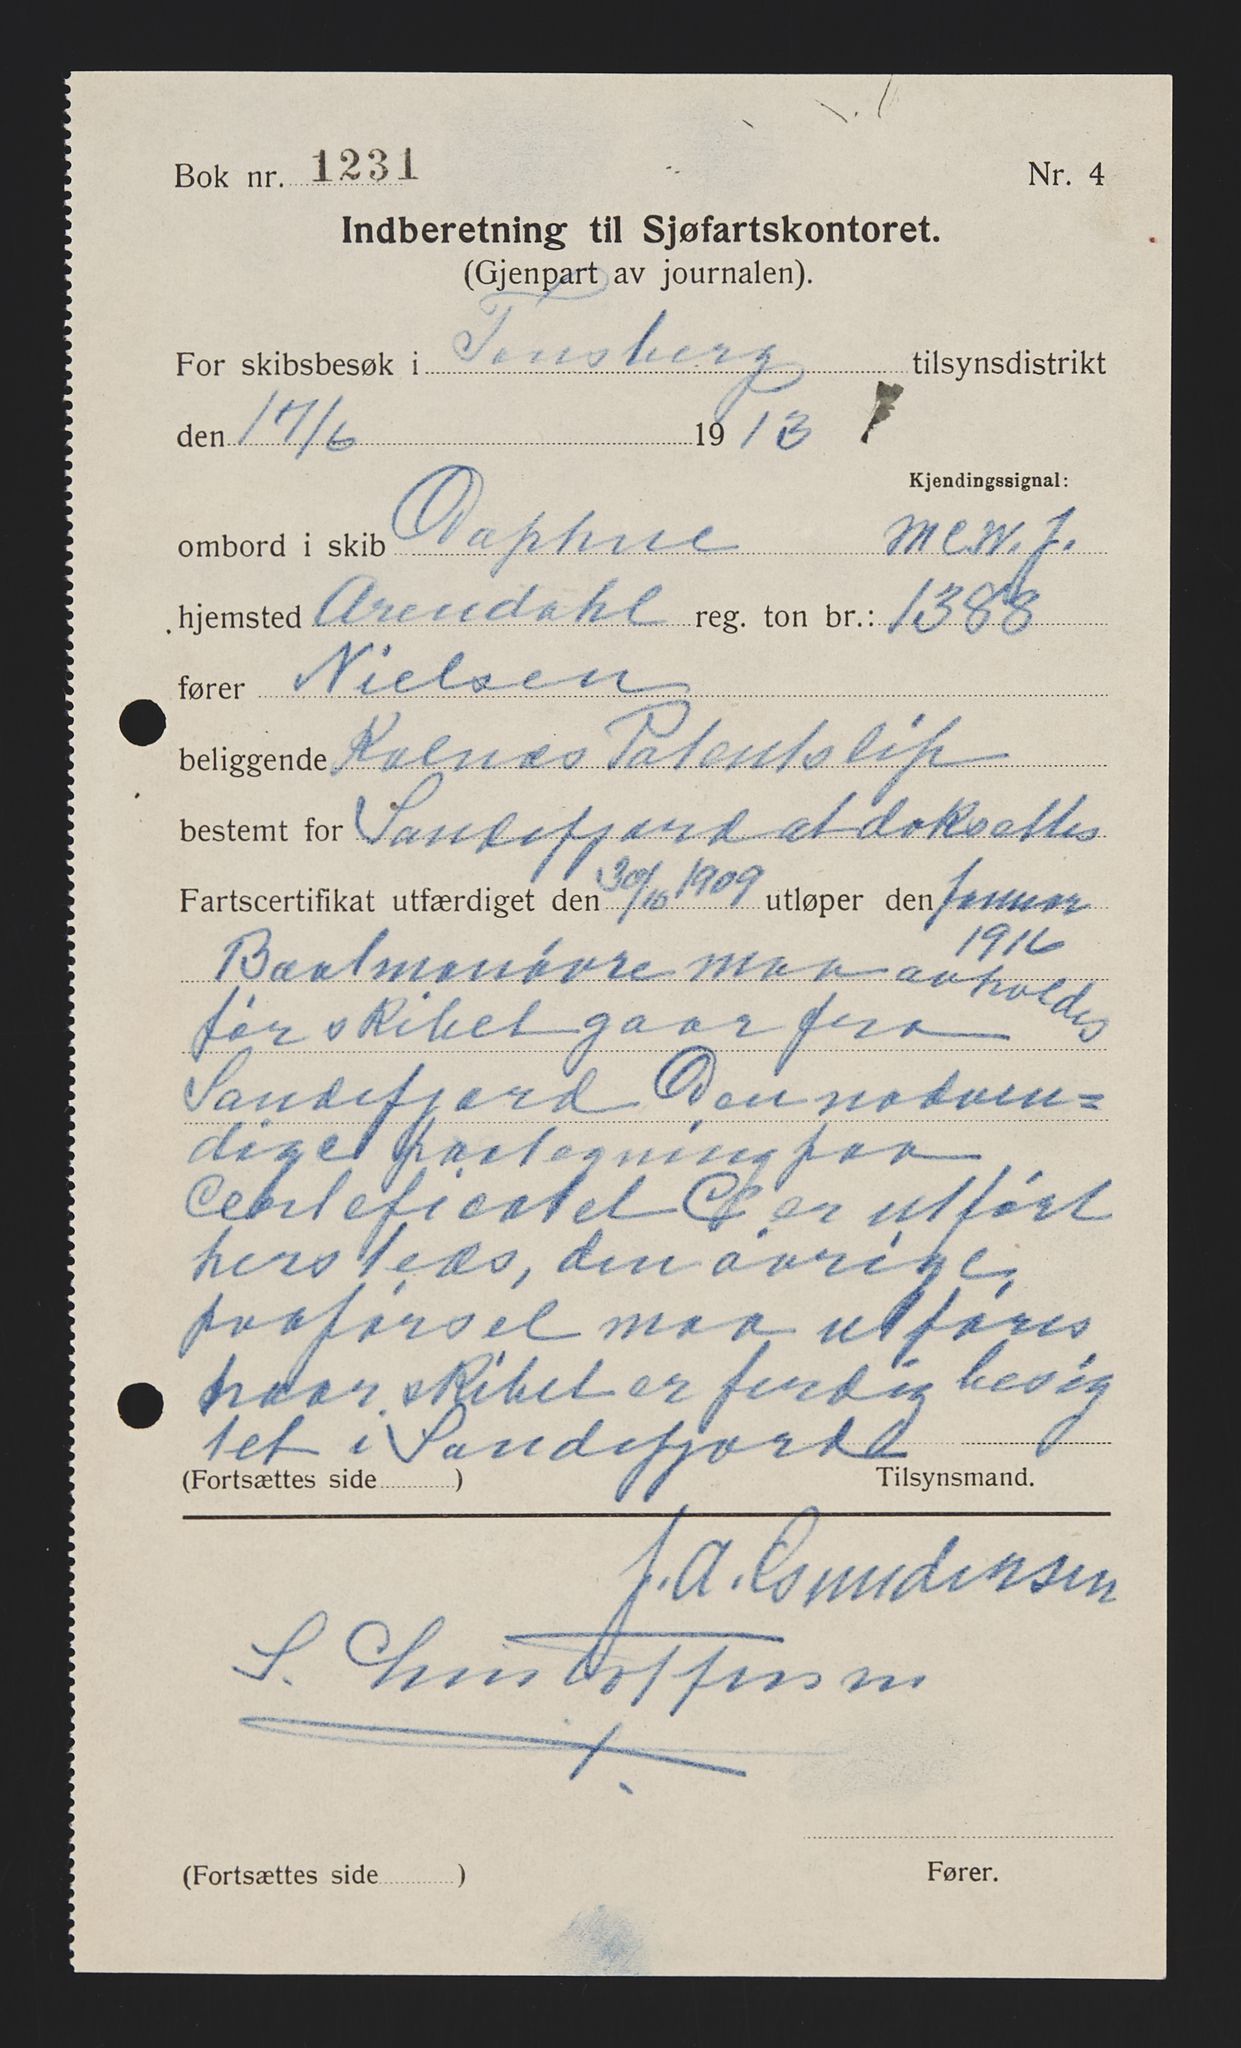 Bok nr. 1231 Nr. 4
Indberetning til Sjøfartskontoret.
(Gjenpart av journalen).
For skibsbesøk i Tønsberg tilsynsdistrikt
den 17/6 1913
Kjendingssignal:
ombord i skib Daphne M.C.W.J.
hjemsted Arendahl reg. ton br.: 1388
fører Nielsen
beliggende Kalnæs Patentslip
bestemt for Sandefjord at doksettes
Fartscertifikat utfærdiget den 30/10 1909 utløper den Januar
1914
Baatmanøvre maa avholdes
før skibet gaar fra
Sandefjord Den nødven=
dige paategning paa
Certeficatet er utført
hersteds, den øvrige
paaførsel maa utføres
naar skibet er ferdig besig
tet i Sandefjord
(Fortsættes side ) Tilsynsmand.
J. A. Gundersen
S. Christoffersen
(Fortsættes side ) Fører.